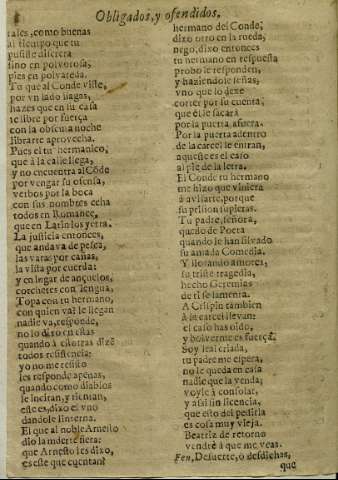 Obligados, y ofendidos,
tales, como buenas
al tiempo que tu
pusiste discreta
sino en polvorosa,
pies en polvareda.
Tu que al Conde viste,
por vn lado llagas,
hazes que en tu casa
te libre por fuerça
con la obscura noche
librarte aprovecha.
Pues el tu hermanico,
que à la calle llega,
y no encuentra al Cõde
por vengar su ofensa,
verbos por la boca
con sus nombres echa
todos en Romance,
que en Latin los yerra.
La justicia entonces,
que andava de pesca,
las varas por cañas,
la vista por cuerda:
y en lugar de ançuelos,
corchetes con lengua,
Topa con tu hermano,
con quien và? le llegan
nadie va, responde,
no lo dixo en estas
quando à estotras dizẽ
todos resistencia:
yo no me resisto
les responde apenas,
quando como diablos
le
este es, dixo el vno
dandole linterna.
El que al noble Arnesto
diò la muerte fiera:
que Arnesto les dixo,
es este que cuentan?
hermano del Conde,
dixo otro en la rueda,
nego, dixo entonces
tu hermano en respuesta
probo le responden,
y haziendole señas,
vno que lo dexe
correr por su cuenta,
que èl le sacarà
por la puerta afuera.
Por la puerta adentro
de la carcel le entran,
aqueste es el caso
al pie de la letra.
El Conde tu hermano
me hizo que viniera
à avisarte, porque
su prision supieras.
Tu padre, señora,
quedò de Poeta
quando le han silvado
su amada Comedia.
Y llorando amores,
su triste tragedia,
hecho Geremias
de ti se lamenta.
A Crispin tambien
à la carcel llevan:
el caso has oido,
y bolverme es fuerçã.
Soy leal criada,
tu padre me espera,
no le queda en casa
nadie que la venda,
voyle à consolar,
y assi sin licencia,
que esto del pedirla
es cosa muy vieja.
Beatriz de retorno
vendrè à que me veas.
Fen, De suerte, ò desdichas,
que